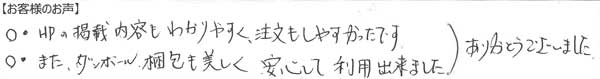 【お客様のお声】
○・HPの掲載内容もわかりやすく、注文もしやすかったです
○・また、ダンボール梱包も美しく安心して利用出来ました。
ありがとうございました。